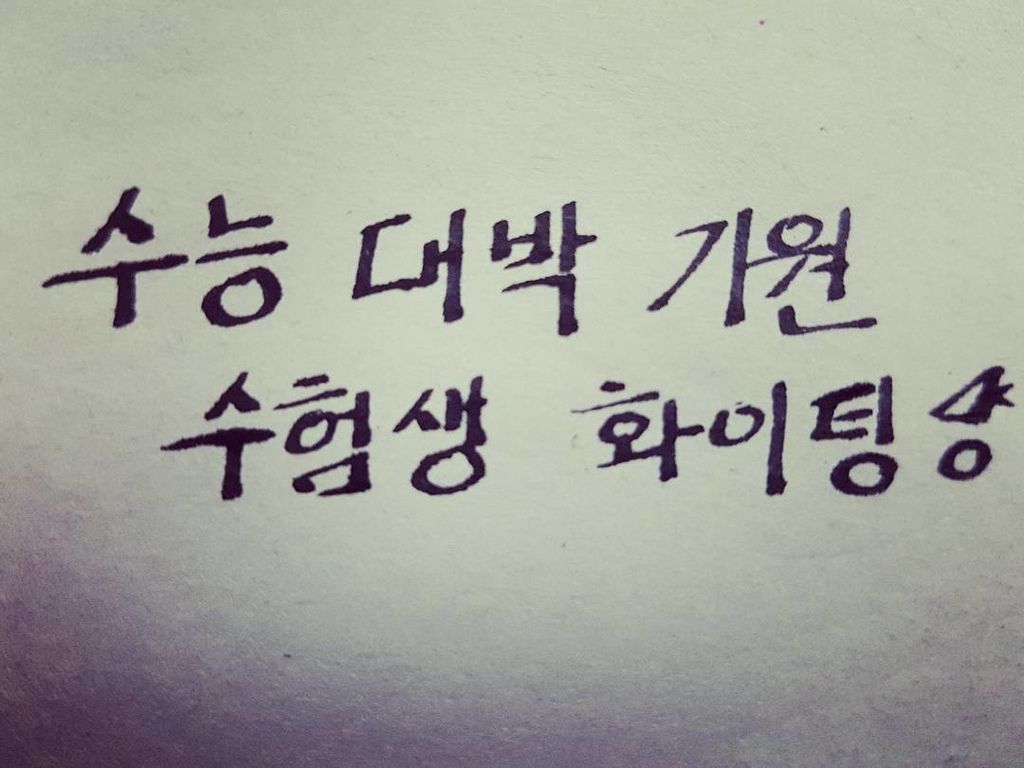 수능 대박 기원
수험생 화이팅